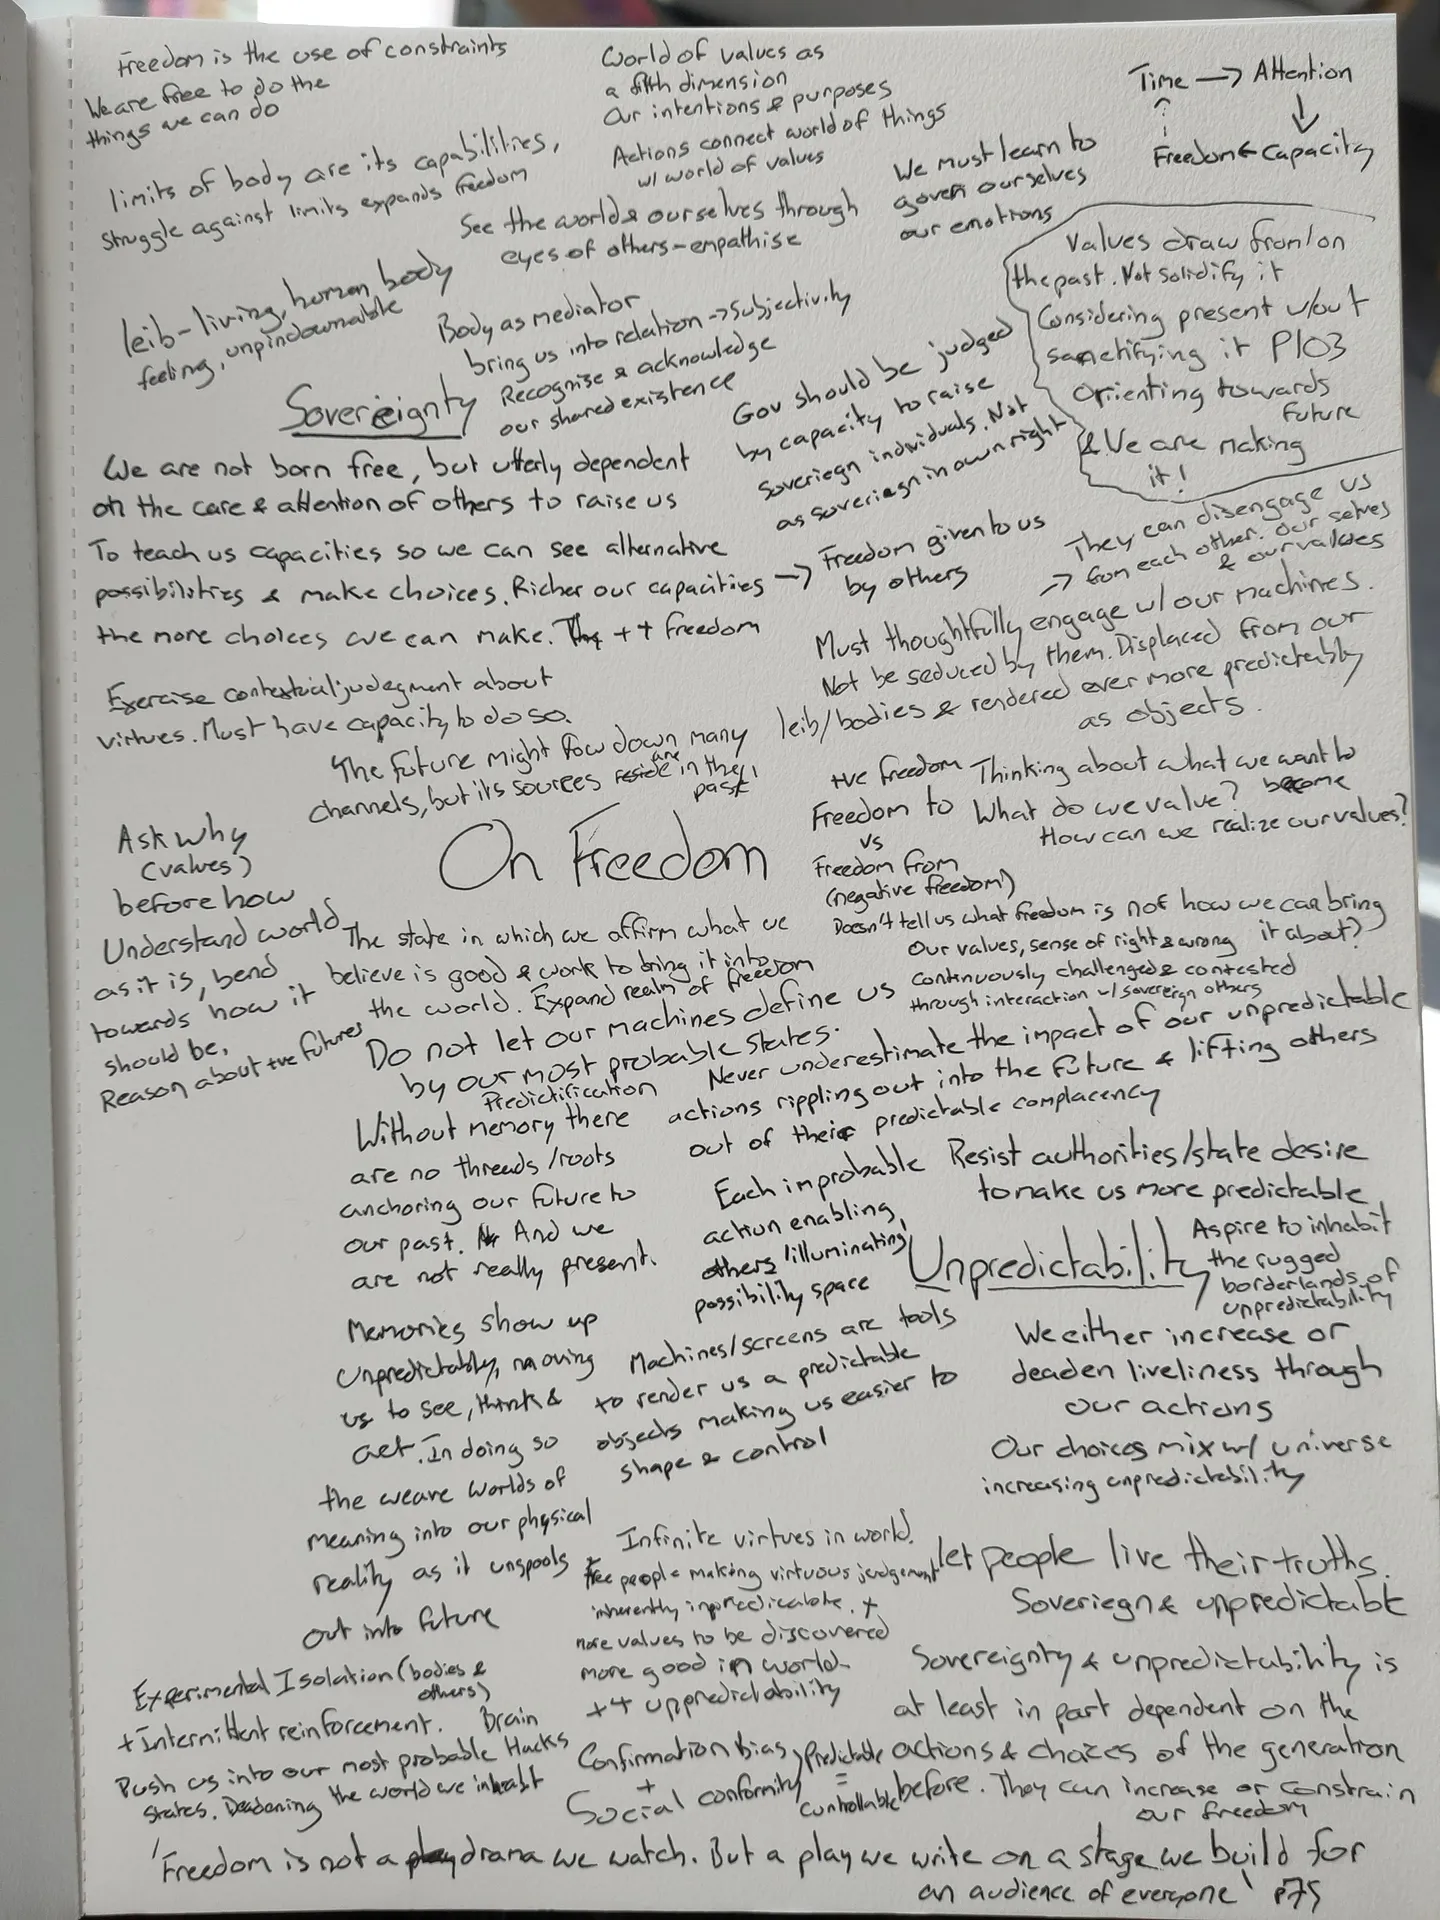 Freedom is the use of constraints
We are free to do the
things we can do
limits of body are its capabilities,
struggle against limits expands freedom
World of values as
a fifth dimension
Our intentions & purposes
Actions connect world of things
w/ world of values
Time -> Attention
Freedom <- Capacity
We must learn to
govern ourselves
our emotions
See the world & ourselves through
eyes of others - empathise
leib - living, human body
feeling, unpindownable
Body as mediator
bring us into relation -> Subjectivity
Recognise & acknowledge
our shared existence
Values draw from/on
the past. Not solidify it
Considering present w/out
sanctifying it P103
Orienting towards
future
& We are making
it!
Gov should be judged
by capacity to raise
Soveriegn individuals. Not
as soveriegn in own right
Sovereignty
We are not born free, but utterly dependent
on the care & attention of others to raise us
To teach us capacities so we can see alternative
possibilities & make choices. Richer our capacities ->
the more choices we can make. ++ freedom
Freedom given to us
by others
They can disengage us
-> from each other. Our selves
& our values
Must thoughtfully engage w/ our machines.
Not be seduced by them. Displaced from our
leib/bodies & rendered ever more predictably
as objects.
Exercise contextual judegment about
virtues. Must have capacity to do so.
'The future might flow down many
channels, but its sources are in the
past'
+ve freedom
Freedom to
vs
Freedom from
(negative freedom)
Thinking about what we want to
become
What do we value?
How can we realize our values?
Doesn't tell us what freedom is nof how we can bring
it about?
Our values, sense of right & wrong
continuously challenged & contested
through interaction w/ sovereign others
On Freedom
Ask why
(values)
before how
Understand world
as it is, bend
towards how it
should be.
Reason about +ve futures
The state in which we affirm what we
believe is good & work to bring it into
the world. Expand realm of freedom
Do not let our machines define us
by our most probable states.
Predictification
Never underestimate the impact of our unpredictable
actions rippling out into the future & lifting others
out of their predictable complacency
Without memory there
are no threads/roots
anchoring our future to
our past. And we
are not really present.
Each improbable
action enabling
others/illuminating
possibility space
Resist authorities/state desire
to make us more predictable
Unpredictability
Aspire to inhabit
the rugged
borderlands of
unpredictability
Memories show up
unpredictably, moving
us to see, think &
act. In doing so
the weave worlds of
meaning into our physical
reality as it unspools
out into future
Machines/screens are tools
to render us a predictable
objects making us easier to
shape & control
We either increase or
deaden liveliness through
our actions
Our choices mix w/ universe
increasing unpredictability
Infinite virtues in world.
free people making virtuous judgement
inherently inpredicatble. +
more values to be discovered
more good in world
++ unpredictability
let people live their truths.
Soveriegn & unpredictable
Sovereignty & unpredictability is
at least in part dependent on the
actions & choices of the generation
before. They can increase or constrain
our freedom
Experimental Isolation (bodies &
others)
+ Intermittent reinforcement. Brain
Hacks
Push us into our most probable
states. Deadening the world we inhabit
Confirmation Bias
+
Social conformity
Predictable
=
Controllable
'Freedom is not a drama we watch. But a play we write on a stage we build for
an audience of everyone' p75